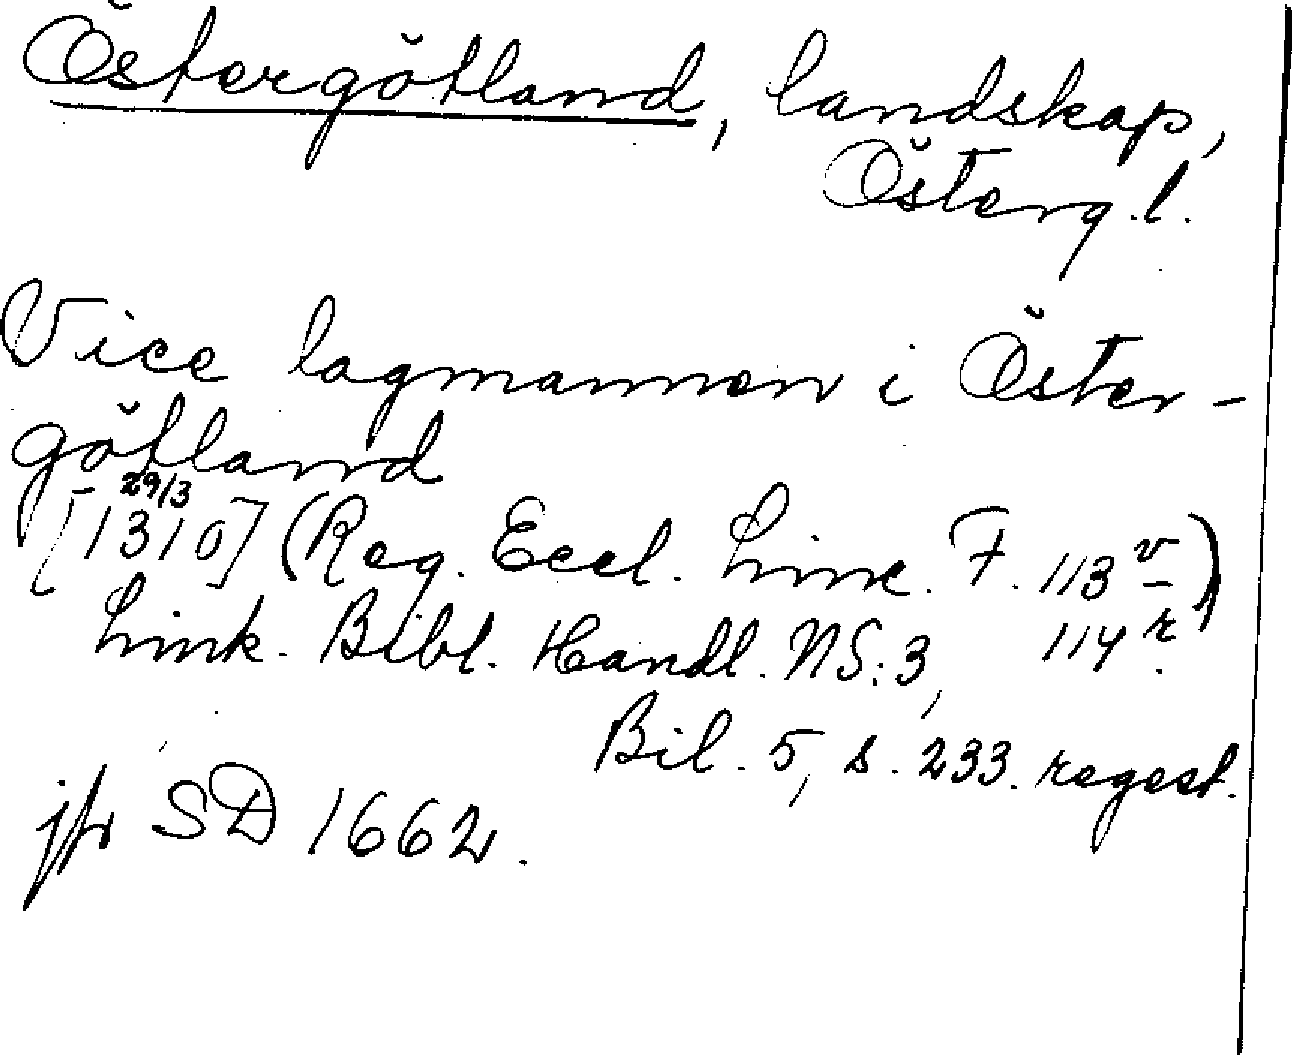 Östergötland, landskap,
Österg.l.
Vice lagmannen i Öster-
götland
[29/3 1310] (Reg. Eccl. Linc. F. 113 v
114 r)
Link. Bibl. Handl. NS:3,
Bil. 5, s. 233. regest.
jfr SD 1662.